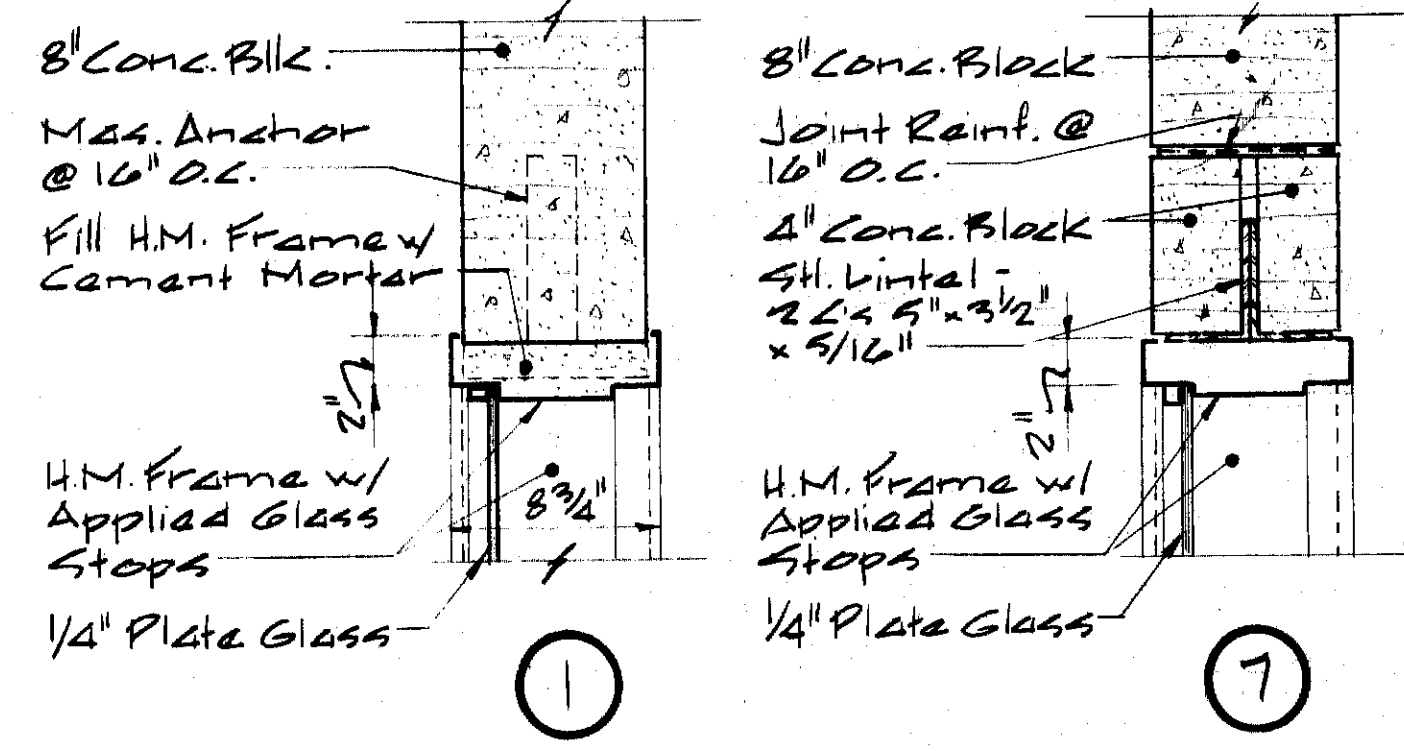 8" Conc. Blk.
Mas. Anchor
@ 16" O.C.
Fill H.M. Frame w/
Cement Mortar
2"
H.M. Frame w/
Applied Glass
Stops
8 3/4"
1/4" Plate Glass
1
8" Conc. Block
Joint Reinf. @
16" O.C.
4" Conc. Block
Stl. Lintel -
2 L's 5" x 3 1/2"
x 5/16"
2"
H.M. Frame w/
Applied Glass
Stops
1/4" Plate Glass
7